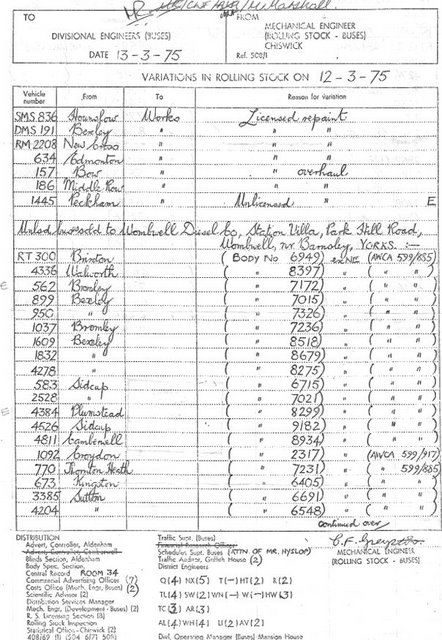 TO
FROM
DIVISIONAL ENGINEERS (BUSES)
MECHANICAL ENGINEER
(ROLLING STOCK - BUSES)
CHISWICK
DATE 13-3-75
Ref. 500/1
VARIATIONS IN ROLLING STOCK ON 12-3-75
Vehicle number From To Reason for variation
SMS 836 Hounslow Works Licensed repaint
DMS 191 Bexley " " "
RM 2208 New Cross " " "
634 Edmonton " " "
157 Bow " " overhaul
186 Middle Row " " "
1445 Peckham " Unlicensed E
to Wombwell Diesel Co, Station Villa, Park Hill Road,
Wombwell, nr Barnsley, YORKS. :—
RT 300 Brixton (BODY No 6949) (AWCA 599/885)
4336 Walworth ( " 8397) " ( " " )
E 562 Bromley ( " 7172) " ( " " )
899 Bexley ( " 7015) " ( " " )
950 " ( " 7326) " ( " " )
1037 Bromley ( " 7236) " ( " " )
1609 Bexley ( " 8518) " ( " " )
1832 " ( " 8679) " ( " " )
4278 " ( " 8275) " ( " " )
583 Sidcup ( " 6715) " ( " " )
2528 " ( " 7021) " ( " " )
E 4384 Plumstead ( " 8299) " ( " " )
4526 Sidcup ( " 9182) " ( " " )
4811 Camberwell ( " 8934) " ( " " )
1092 Croydon ( " 2317) " (AWCA 599/917)
770 Thornton Heath ( " 7231) " ( " 599/885)
673 Kingston ( " 6405) " ( " " )
3385 Sutton ( " 6691) " ( " " )
4204 " ( " 6548) " ( " " )
continued over
MECHANICAL ENGINEER
(ROLLING STOCK - BUSES)
DISTRIBUTION
Advert. Controller, Aldenham
Blinds Section, Aldenham
Body Spec. Section
Central Record ROOM 34
Commercial Advertising Officer (7)
Costs Office (Mech. Engr. Buses) (2)
Scientific Adviser (2)
Distribution Services Manager
Mech. Engr. (Development - Buses) (2)
R. S. Licensing Section (3)
Rolling Stock Inspection
Statistical Office - Chiswick (2)
Traffic Supt. (Buses)
Schedules Supt. Buses (ATTN OF MR. HYSLOP)
Traffic Auditor, Griffith House (2)
District Engineers
Q(4) NX(5) T(-) HT(2) R(2)
TL(4) SW(2) WN(-) W(-) HW(3)
TC(3) AR(3)
AL(4) WH(4) LI(2) AV(2)
Divl. Operating Manager (Buses) Mansion House